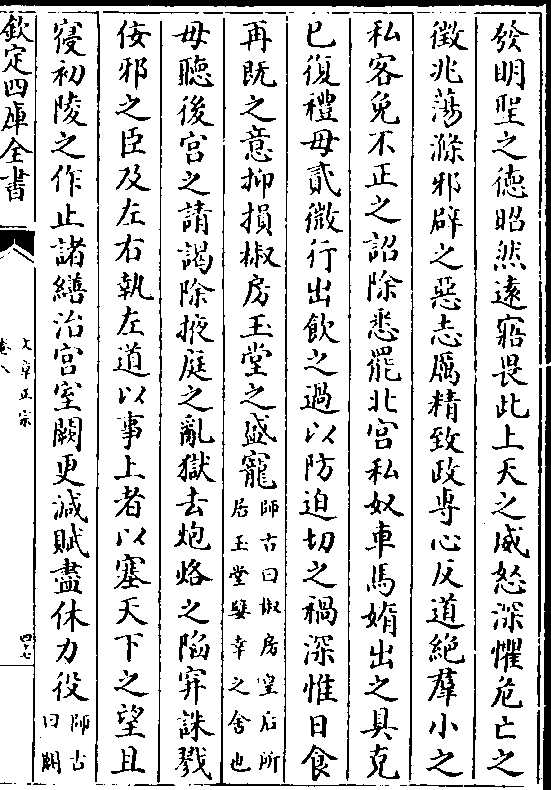 發明聖之德昭然遠寤畏此上天之威怒深懼危亡之
徵兆蕩滌邪辟之惡志厲精致政專心反道絶羣小之
私客免不正之詔除悉罷北宮私奴車馬媠出之具克
已復禮毋貳微行出飲之過以防迫切之禍深惟日食
再既之意抑損椒房玉堂之盛寵師古曰椒房皇后所居玉堂嬖幸之舍也
毋聽後宮之請謁除掖庭之亂獄去炮烙之陷穽誅戮
佞邪之臣及左右執左道以事上者以塞天下之望且
寑初陵之作止諸繕治宮室闕更減賦盡休力役師古曰闕
欽定四庫全書
文章正宗
卷八
四十七